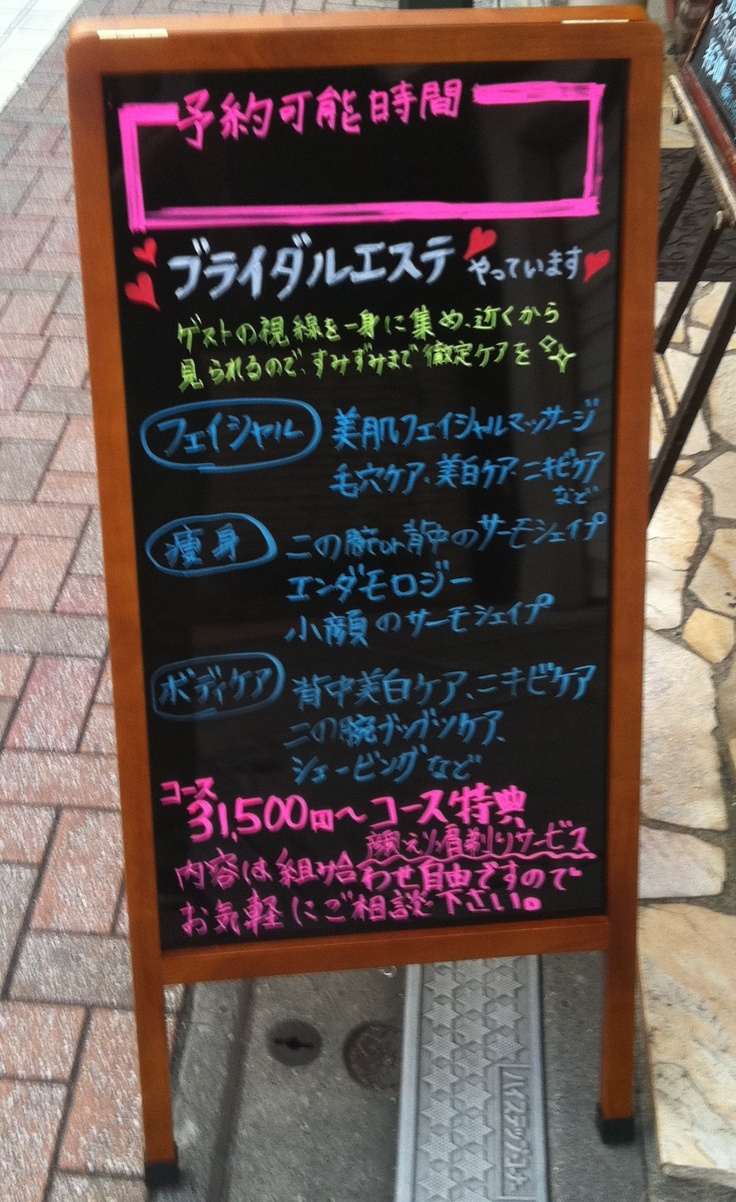 予約可能時間
ブライダルエステ やっています
ゲストの視線を一身に集め、近くから
見られるので、すみずみまで徹底ケアを
フェイシャル 美肌フェイシャルマッサージ
毛穴ケア、美白ケア、ニキビケア
など
痩身 二の腕or背中のサーモシェイプ
エンダモロジー
小顔のサーモシェイプ
ボディケア 背中美白ケア、ニキビケア
二の腕ブツブツケア、
シェービングなど
コース
31,500円〜 コース特典
顔えり眉剃りサービス
内容は組み合わせ自由ですので
お気軽にご相談下さい。